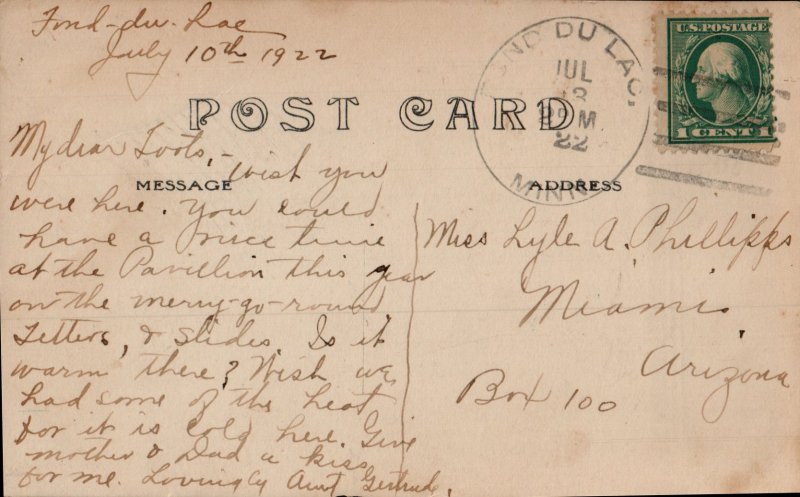 Fond-du-Lac
July 10th 1922
POST CARD
FOND DU LAC,
JUL
PM
22
MINN.
U.S. POSTAGE
1 CENT 1
MESSAGE
ADDRESS
My dear Toots, -
Wish you
were here. You could
have a nice time
at the Pavillion this year
on the merry-go-round
Tetters, & slides. Is it
warm there? Wish we
had some of the heat
for it is cold here. Give
mother & Dad a kiss
for me. Lovingly Aunt Gertrude.
Miss Lyle A. Phillipps
Miami
Arizona
Box 100